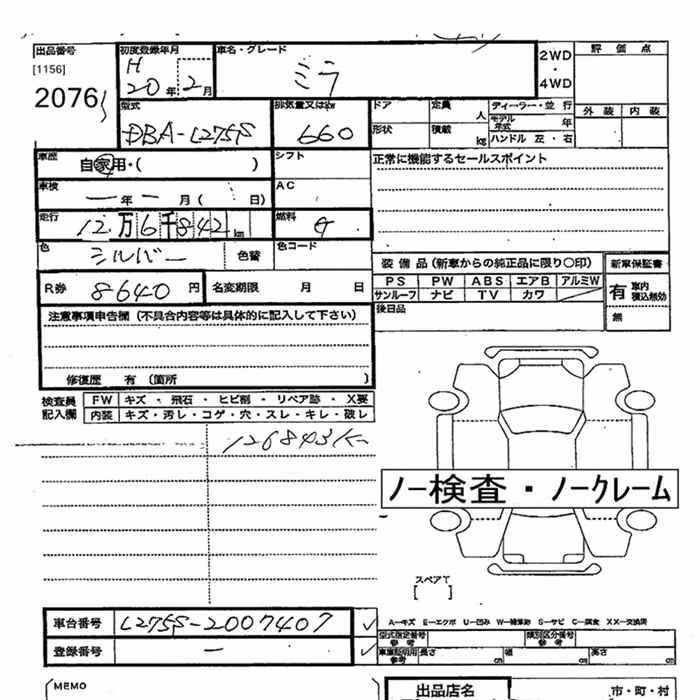 出品番号
[1156]
2076
初度登録年月
H 20年 2月
車名・グレード
ミラ
2WD
・
4WD
評価点
外装 内装
型式
DBA-L275S
排気量又はkw
660
ドア
定員 人
ディーラー・並行
モデル年式 年
形状
積載 kg
ハンドル 左・右
車歴
自家用・( )
シフト
正常に機能するセールスポイント
車検
ー年ー月( 日)
AC
走行
12万6千842km
燃料
G
色
シルバー
色替
色コード
装備品(新車からの純正品に限り〇印)
新車保証書
PS PW ABS エアB アルミW
サンルーフ ナビ TV カワ
有 車内積込無効
無
R券
8640円
名変期限 月 日
後日品
注意事項申告欄(不具合内容等は具体的に記入して下さい)
修復歴 有(箇所 )
検査員記入欄
FW キズ・飛石・ヒビ割・リペア跡・X要
内装 キズ・汚レ・コゲ・穴・スレ・キレ・破レ
126843K
ノー検査・ノークレーム
スペアT
[ ]
車台番号
L275S-2007407
登録番号
ー
A-キズ E-エクボ U-凹み W-補修跡 S-サビ C-腐食 XX-交換済
型式指定番号
参考
類別区分番号
参考
車庫証明用
参考
長さ cm
幅 cm
高さ cm
MEMO
出品店名
市・町・村